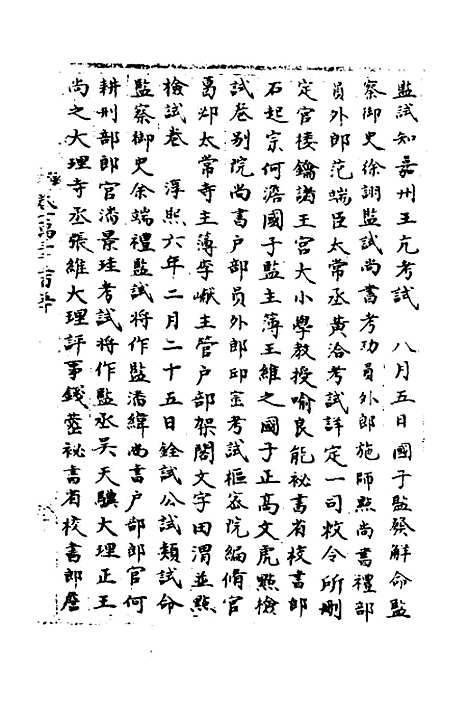 監試知嘉州王亢考試　八月五日國子監發解命監
察御史徐詡監試尚書考功員外郎施師點尚書禮部
員外郎范端臣太常丞黃洽考試詳定一司敕令所刪
定官樓鑰諸王宮大小學教授喻良能祕書省校書郎
石起宗何澹國子監主簿王維之國子正高文虎點檢
試卷別院尚書戶部員外郎邱崈考試樞密院編脩官
葛邲太常寺主簿李巘主管戶部架閣文字田渭並點
檢試卷　淳熙六年二月二十五日銓試公試類試命
監察御史余端禮監試將作監潘緯尚書戶部郎官何
耕刑部郎官潘景珪考試將作監丞吳天驥大理正王
尚之大理寺丞張維大理評事錢藎祕書省校書郎詹
卷一萬三千二百